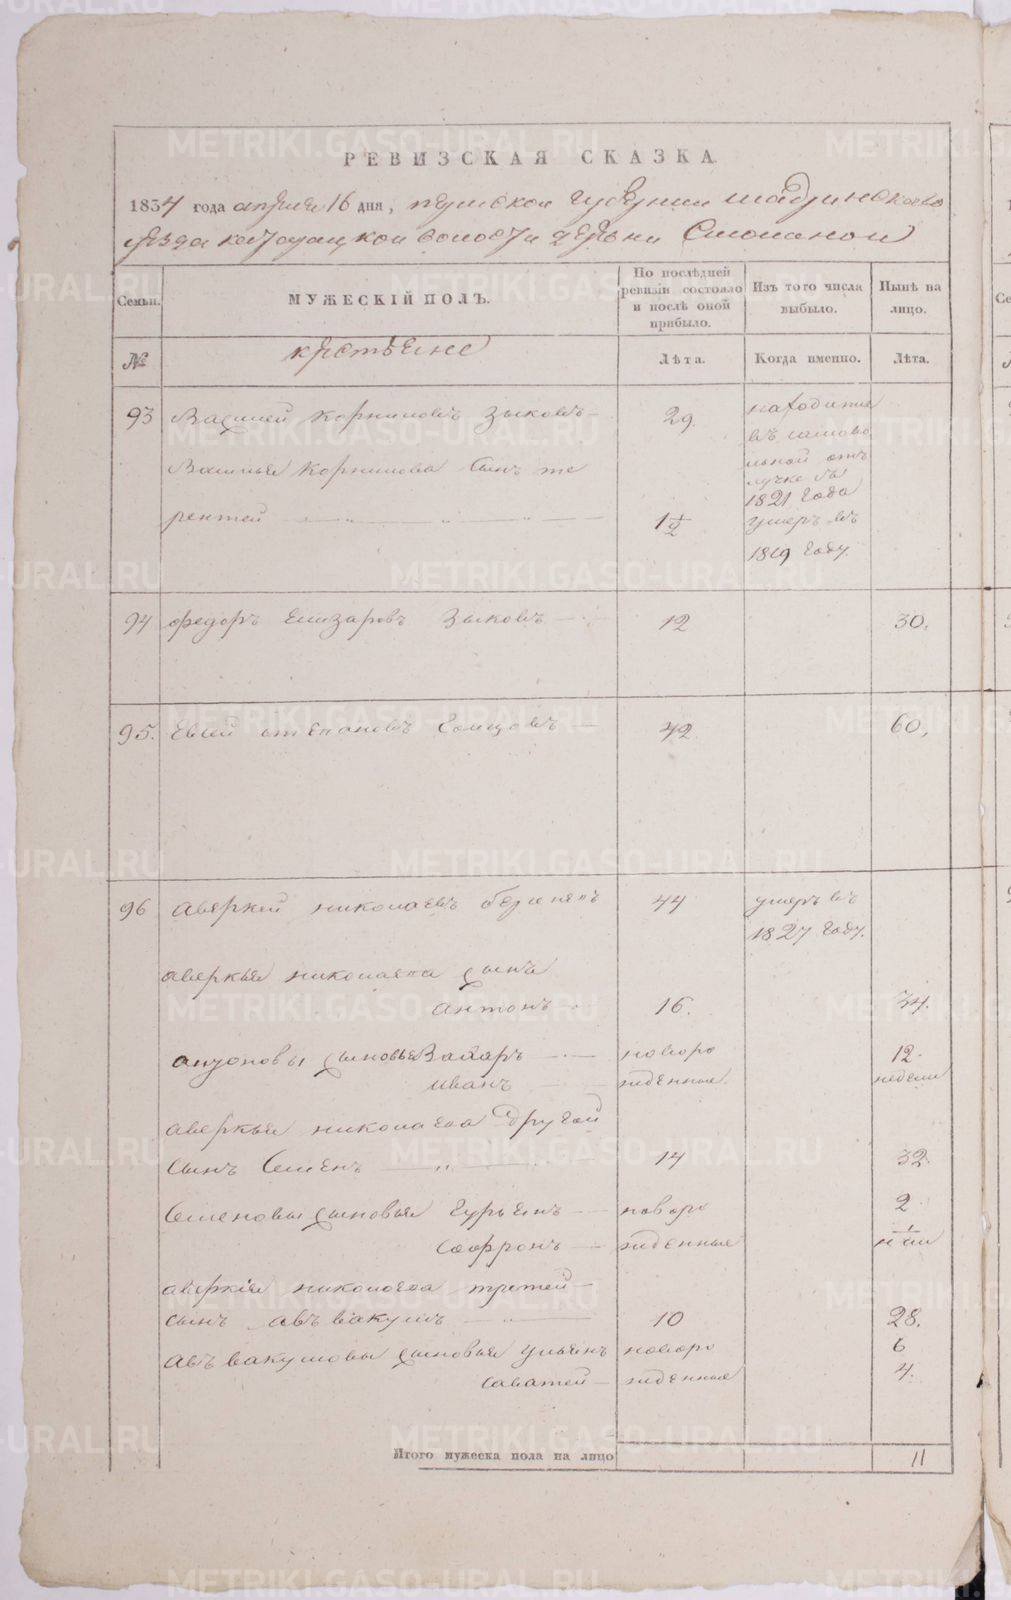 РЕВИЗСКАЯ СКАЗКА.
1834 года апреля 16 дня, пермской губернии шадринскаго
уезда волости деревни
Семьи.
МУЖЕСКІЙ ПОЛЪ.
По послѣдней ревизіи состояло и послѣ оной прибыло.
Изъ того числа выбыло.
Нынѣ на лицо.
№
крестьяне
Лѣта.
Когда именно.
Лѣта.
93 Василей Корниловъ Зыковъ 29. находитца
въ самово
Василья Корнилова сынъ те льной отъ
лучке съ
1821 года
рентей 1 1/2 умеръ въ
1819 году.
94 федоръ елизаровъ зыковъ 12 30.
95. Евсей степановъ 42 60,
96 аверкей николаевъ 44 умеръ въ
1827 году.
аверкья николаева сынъ
антонъ 16. 34.
антоновы сыновья Захаръ новоро 12.
иванъ жденные. недели
аверкья николаева другой
сынъ Семенъ 14 32.
Семеновы сыновья гурьянъ новоро 2
софронъ жденные 1
аверкія николаева третей
сынъ авъвакумъ 10 28.
авъвакумовы сыновья ульянъ новоро 6
саватей жденные 4.
Итого мужеска пола на лицо 11
METRIKI.GASO-URAL.RU